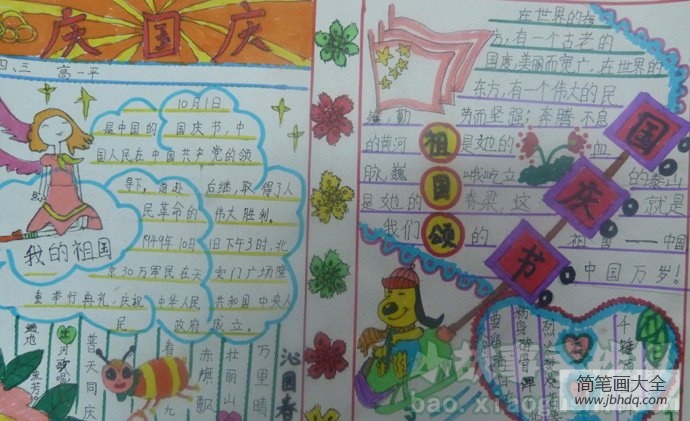 庆国庆
四、三 高一平
10月1日
是中国的国庆节,中
国人民在中国共产党的领
导下。前赴后继,取得了人
民革命的伟大胜利。
1949年10月1日下午3时,北
京30万军民在天安门广场隆
重举行典礼,庆祝中华人民共和国中央人
民政府成立。
我的祖国
遍地
普天同庆
春
九
赤旗飘
壮丽山
万里晴
沁园春
在世界的东
方,有一个古老的
国度,美丽而宽广,在世界的
东方,有一个伟大的民
雄,勤劳而坚强;奔腾不息
的黄河是她的血
脉,巍峨屹立的泰山
是她的脊梁,这就是
我们的祖国——中国
中国万岁!
祖国颂
国庆节
千锤
烈火
粉身碎骨
要留清白在
简笔画大全
www.jbhdq.com